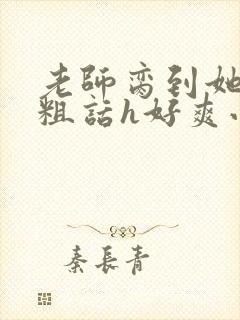 老師弯到她
粗話h好爽小
秦長青